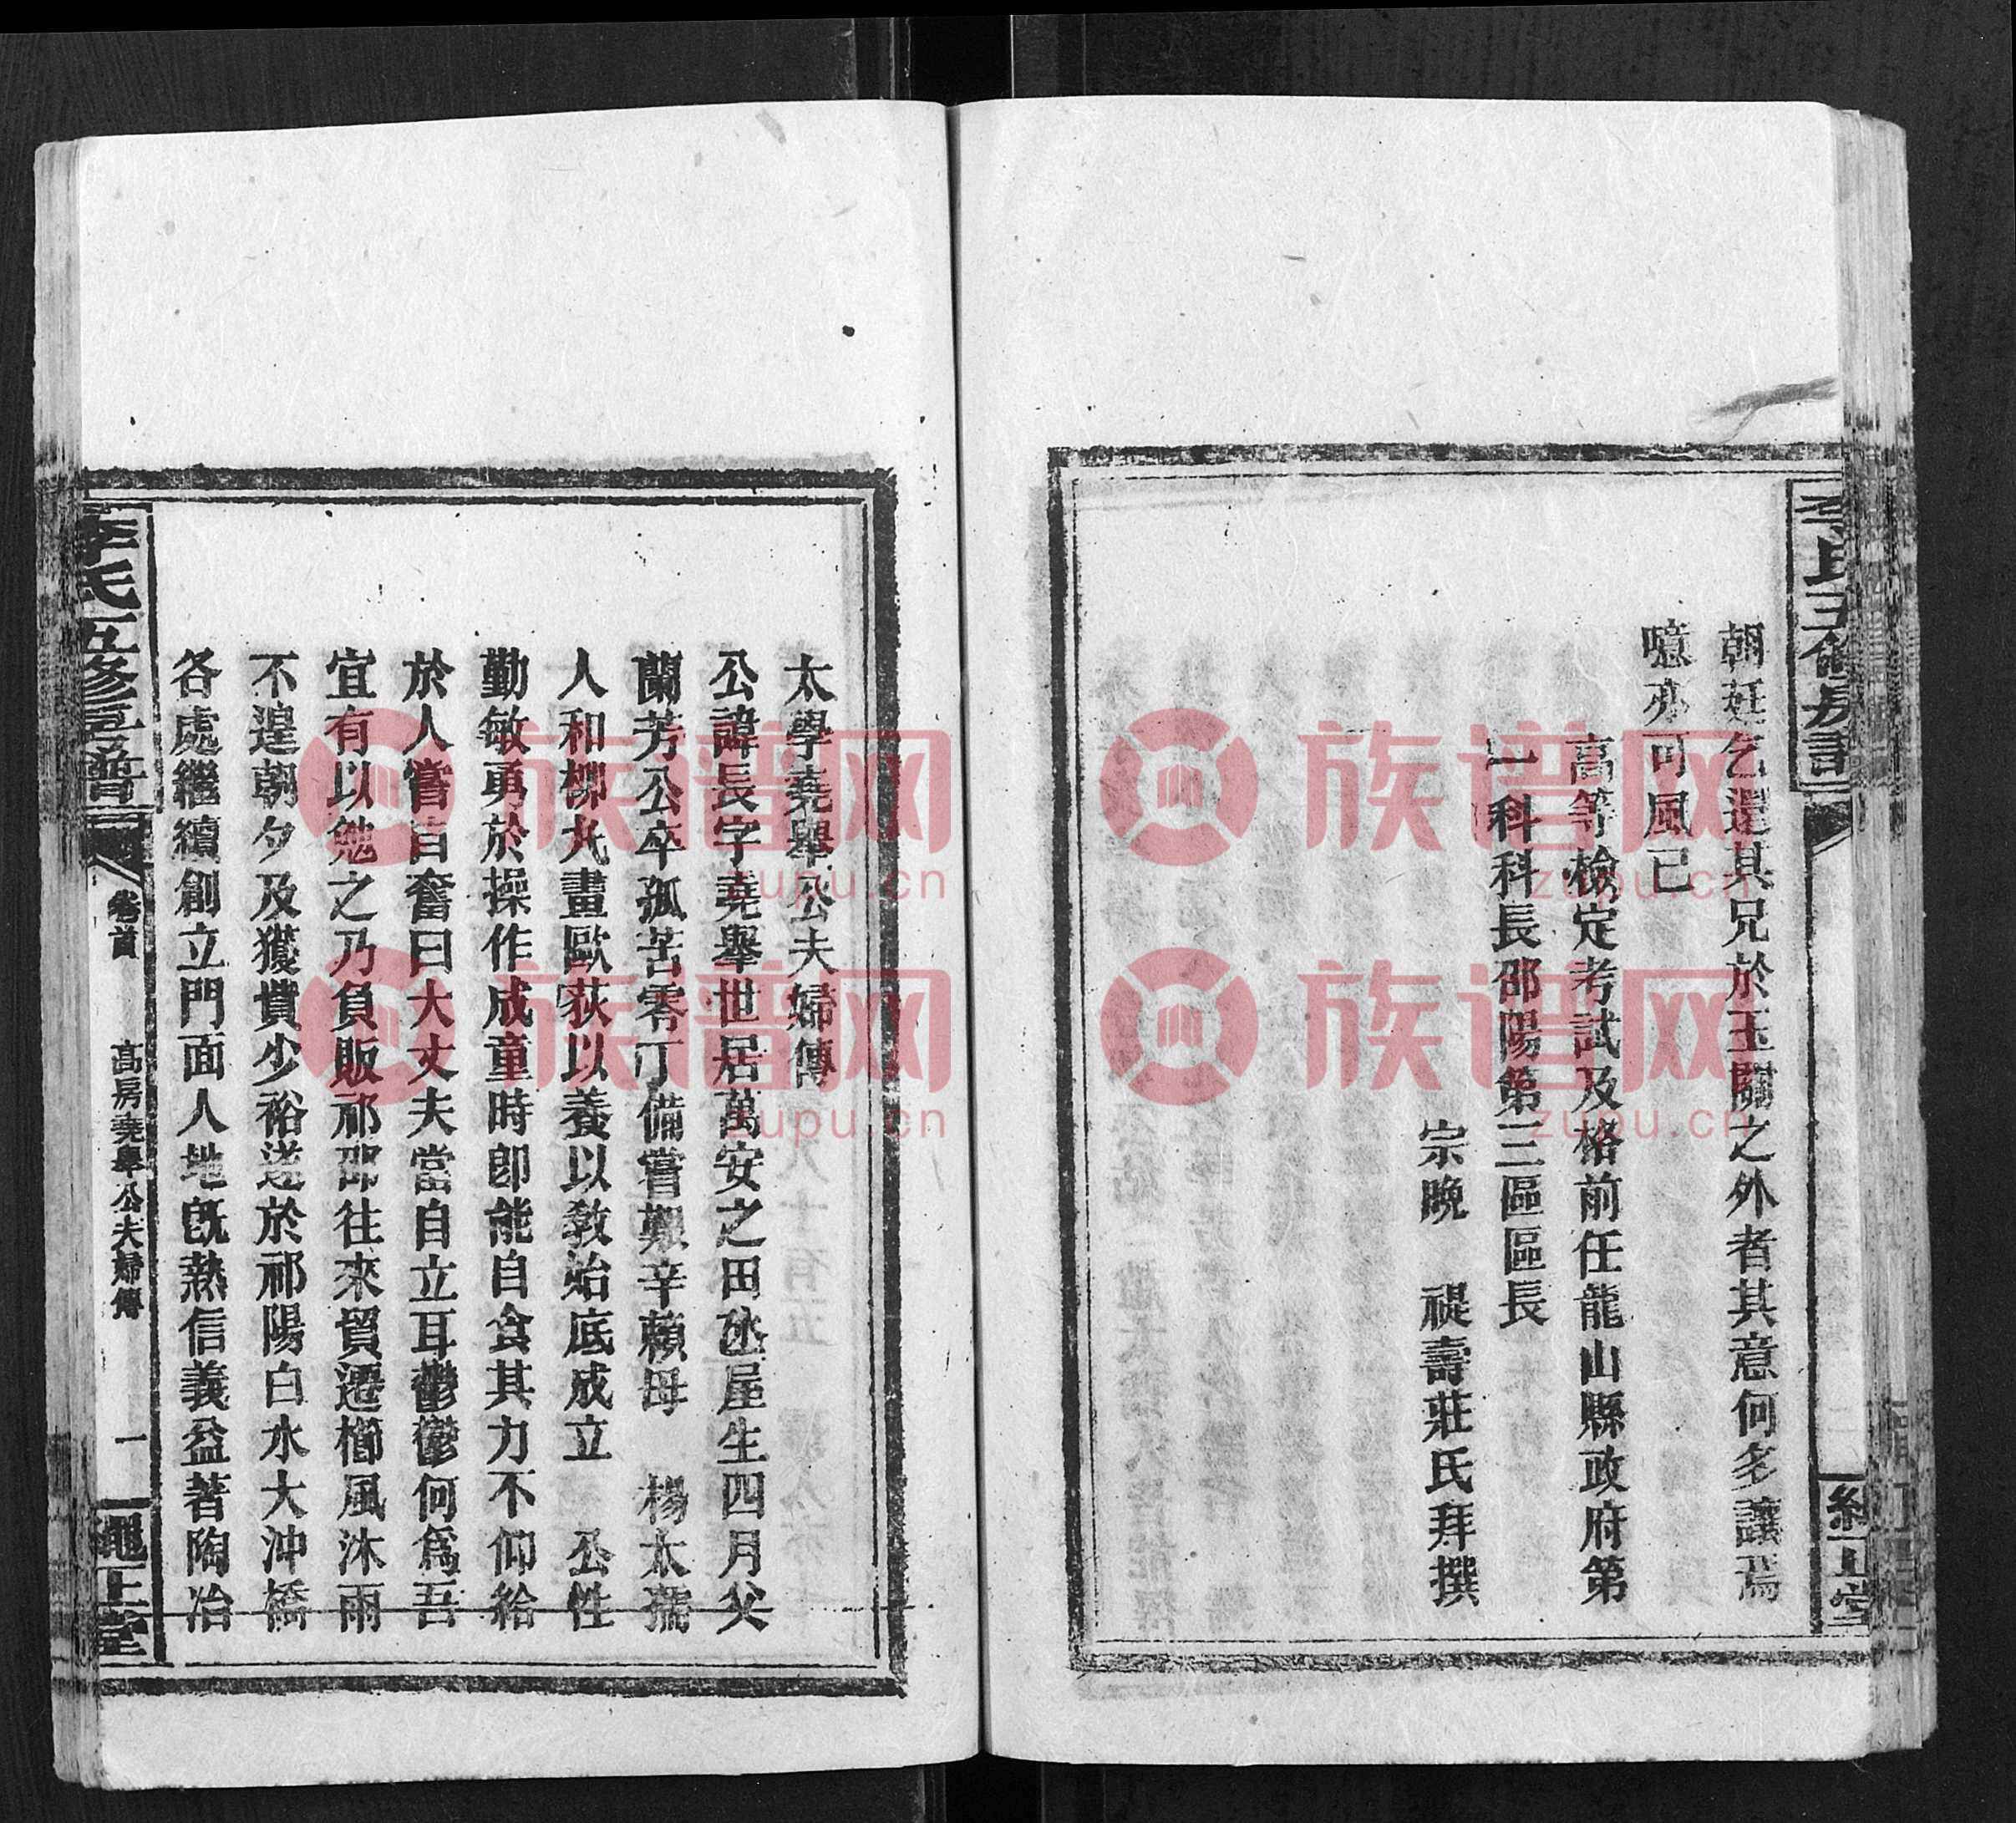 朝廷乞還其兄於玉關之外者其意何多讓焉
噫亦可風已
高等檢定考試及格前任龍山縣政府第
一科科長邵陽第三區區長
宗晚 禔壽莊氏拜撰
太學堯舉公夫婦傳
公諱長字堯舉世居萬安之田氹屋生四月父
蘭芳公卒孤苦零丁備嘗艱辛賴母 楊太孺
人和柳丸畫歐荻以養以教始底成立 公性
勤敏勇於操作成童時即能自食其力不仰給
於人嘗自奮曰大丈夫當自立耳鬱鬱何為吾
宜有以勉之乃負販祁邵往來貿遷櫛風沐雨
不遑朝夕及獲貲少裕遂於祁陽白水大沖橋
各處繼續創立門面人地既熱信義益著陶冶
李氏五修房譜
卷首
高房堯舉公夫婦傳
一
繩正堂
族谱网
zupu.cn
族谱网
zupu.cn
族谱网
zupu.cn
族谱网
zupu.cn